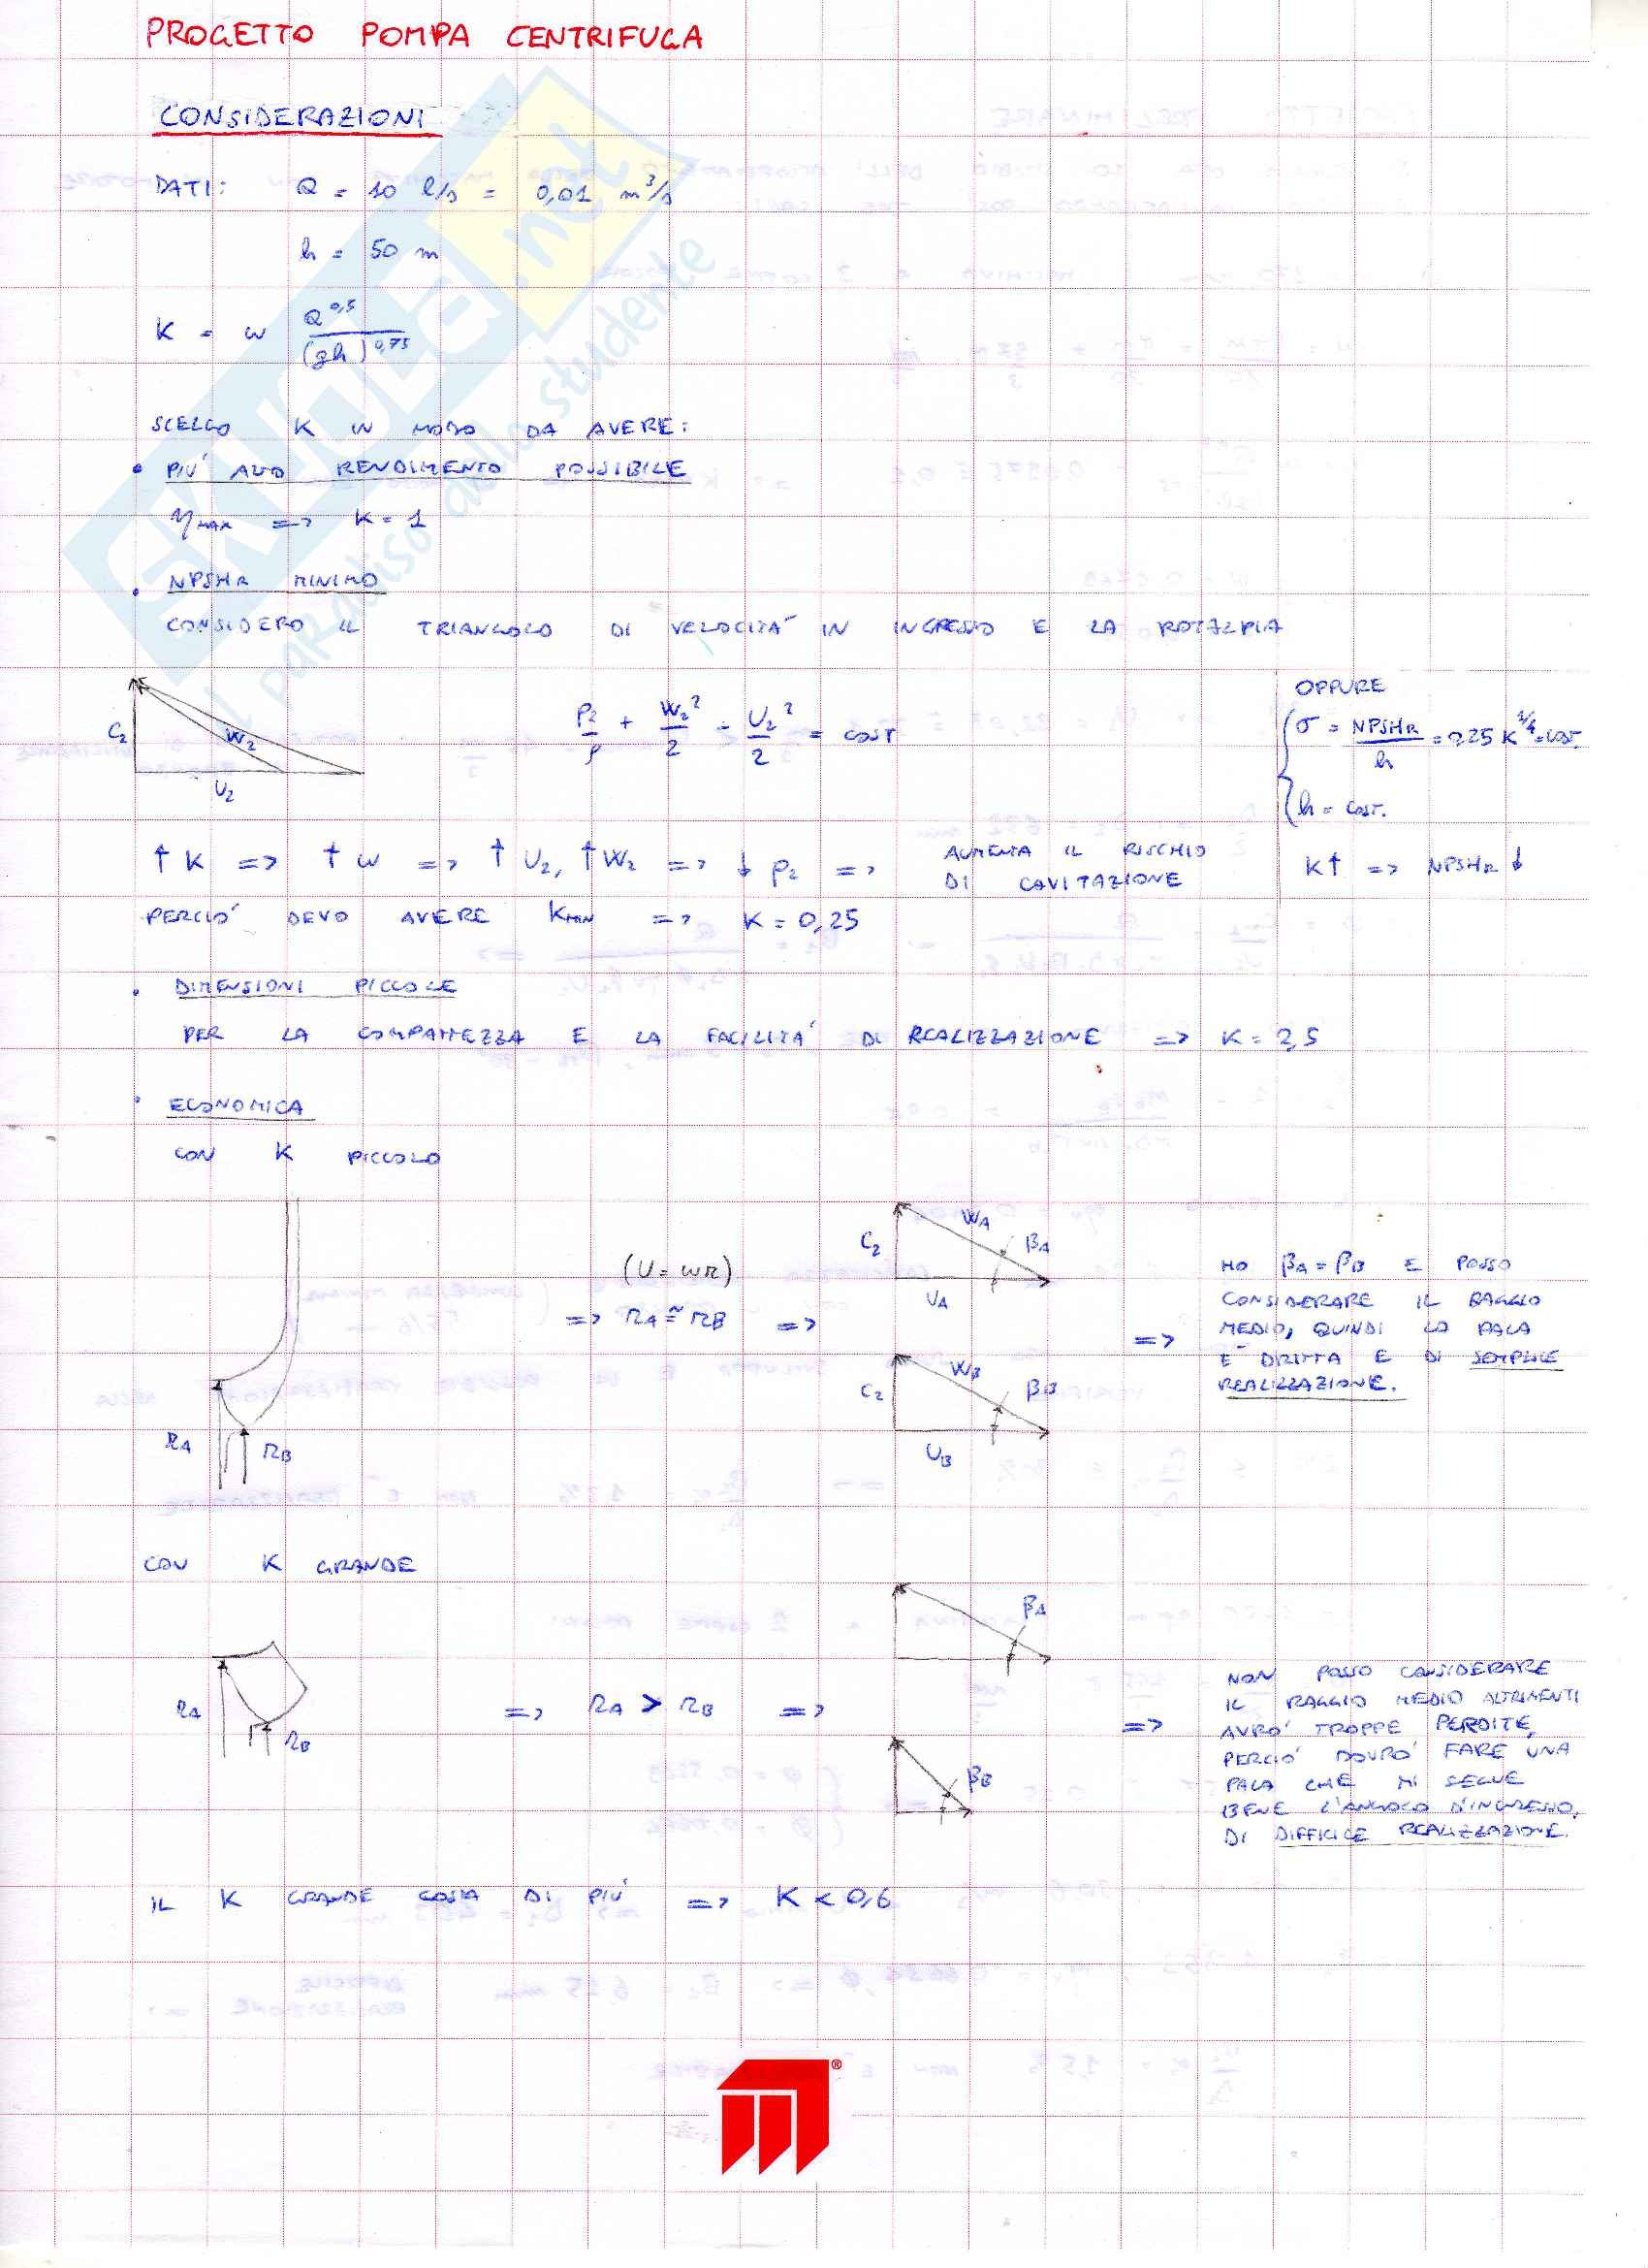 PROGETTO POMPA CENTRIFUGA
CONSIDERAZIONI
DATI: Q = 10 l/s = 0,01 m³/s
h = 50 m
K = ω Q^0,5 / (gh)^0,75
SCELGO K IN MODO DA AVERE:
• PIU' ALTO RENDIMENTO POSSIBILE
η MAX => K = 1
• NPSHR MINIMO
CONSIDERO IL TRIANGOLO DI VELOCITA' IN INGRESSO E LA ROTALPIA
C2 W2 U2
P2/ρ + W2²/2 - U2²/2 = COST
OPPURE
σ = NPSHR/h = 0,25 K^4/4 = COST.
h = COST.
K↑ => NPSHR ↓
↑ K => ↑ ω => ↑ U2, ↑ W2 => ↓ P2 => AUMENTA IL RISCHIO
DI CAVITAZIONE
PERCIO' DEVO AVERE KMIN => K = 0,25
• DIMENSIONI PICCOLE
PER LA COMPATTEZZA E LA FACILITA' DI REALIZZAZIONE => K = 2,5
• ECONOMICA
CON K PICCOLO
RA RB
(U = ωR)
=> RA ≅ RB =>
C2 WA βA UA
C2 WB βB UB
=>
HO βA = βB E POSSO
CONSIDERARE IL RAGGIO
MEDIO, QUINDI LA PALA
E' DIRITTA E DI SEMPLICE
REALIZZAZIONE.
CON K GRANDE
RA RB
=> RA > RB =>
βA
βB
=>
NON POSSO CONSIDERARE
IL RAGGIO MEDIO ALTRIMENTI
AVRO' TROPPE PERDITE,
PERCIO' DOVRO' FARE UNA
PALA CHE MI SEGUE
BENE L'ANGOLO D'INGRESSO,
DI DIFFICILE REALIZZAZIONE.
IL K GRANDE COSTA DI PIU' => K < 0,6
SKUOLA.net
il paradiso dello studente
®